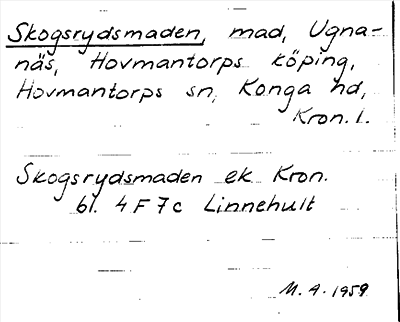 Skogsrydsmaden, mad, Ugna-
näs, Hovmantorps köping,
Hovmantorps sn, Konga hd,
Kron. l.
Skogsrydsmaden ek Kron.
bl. 4 F 7 c Linnehult
M. A. 1959